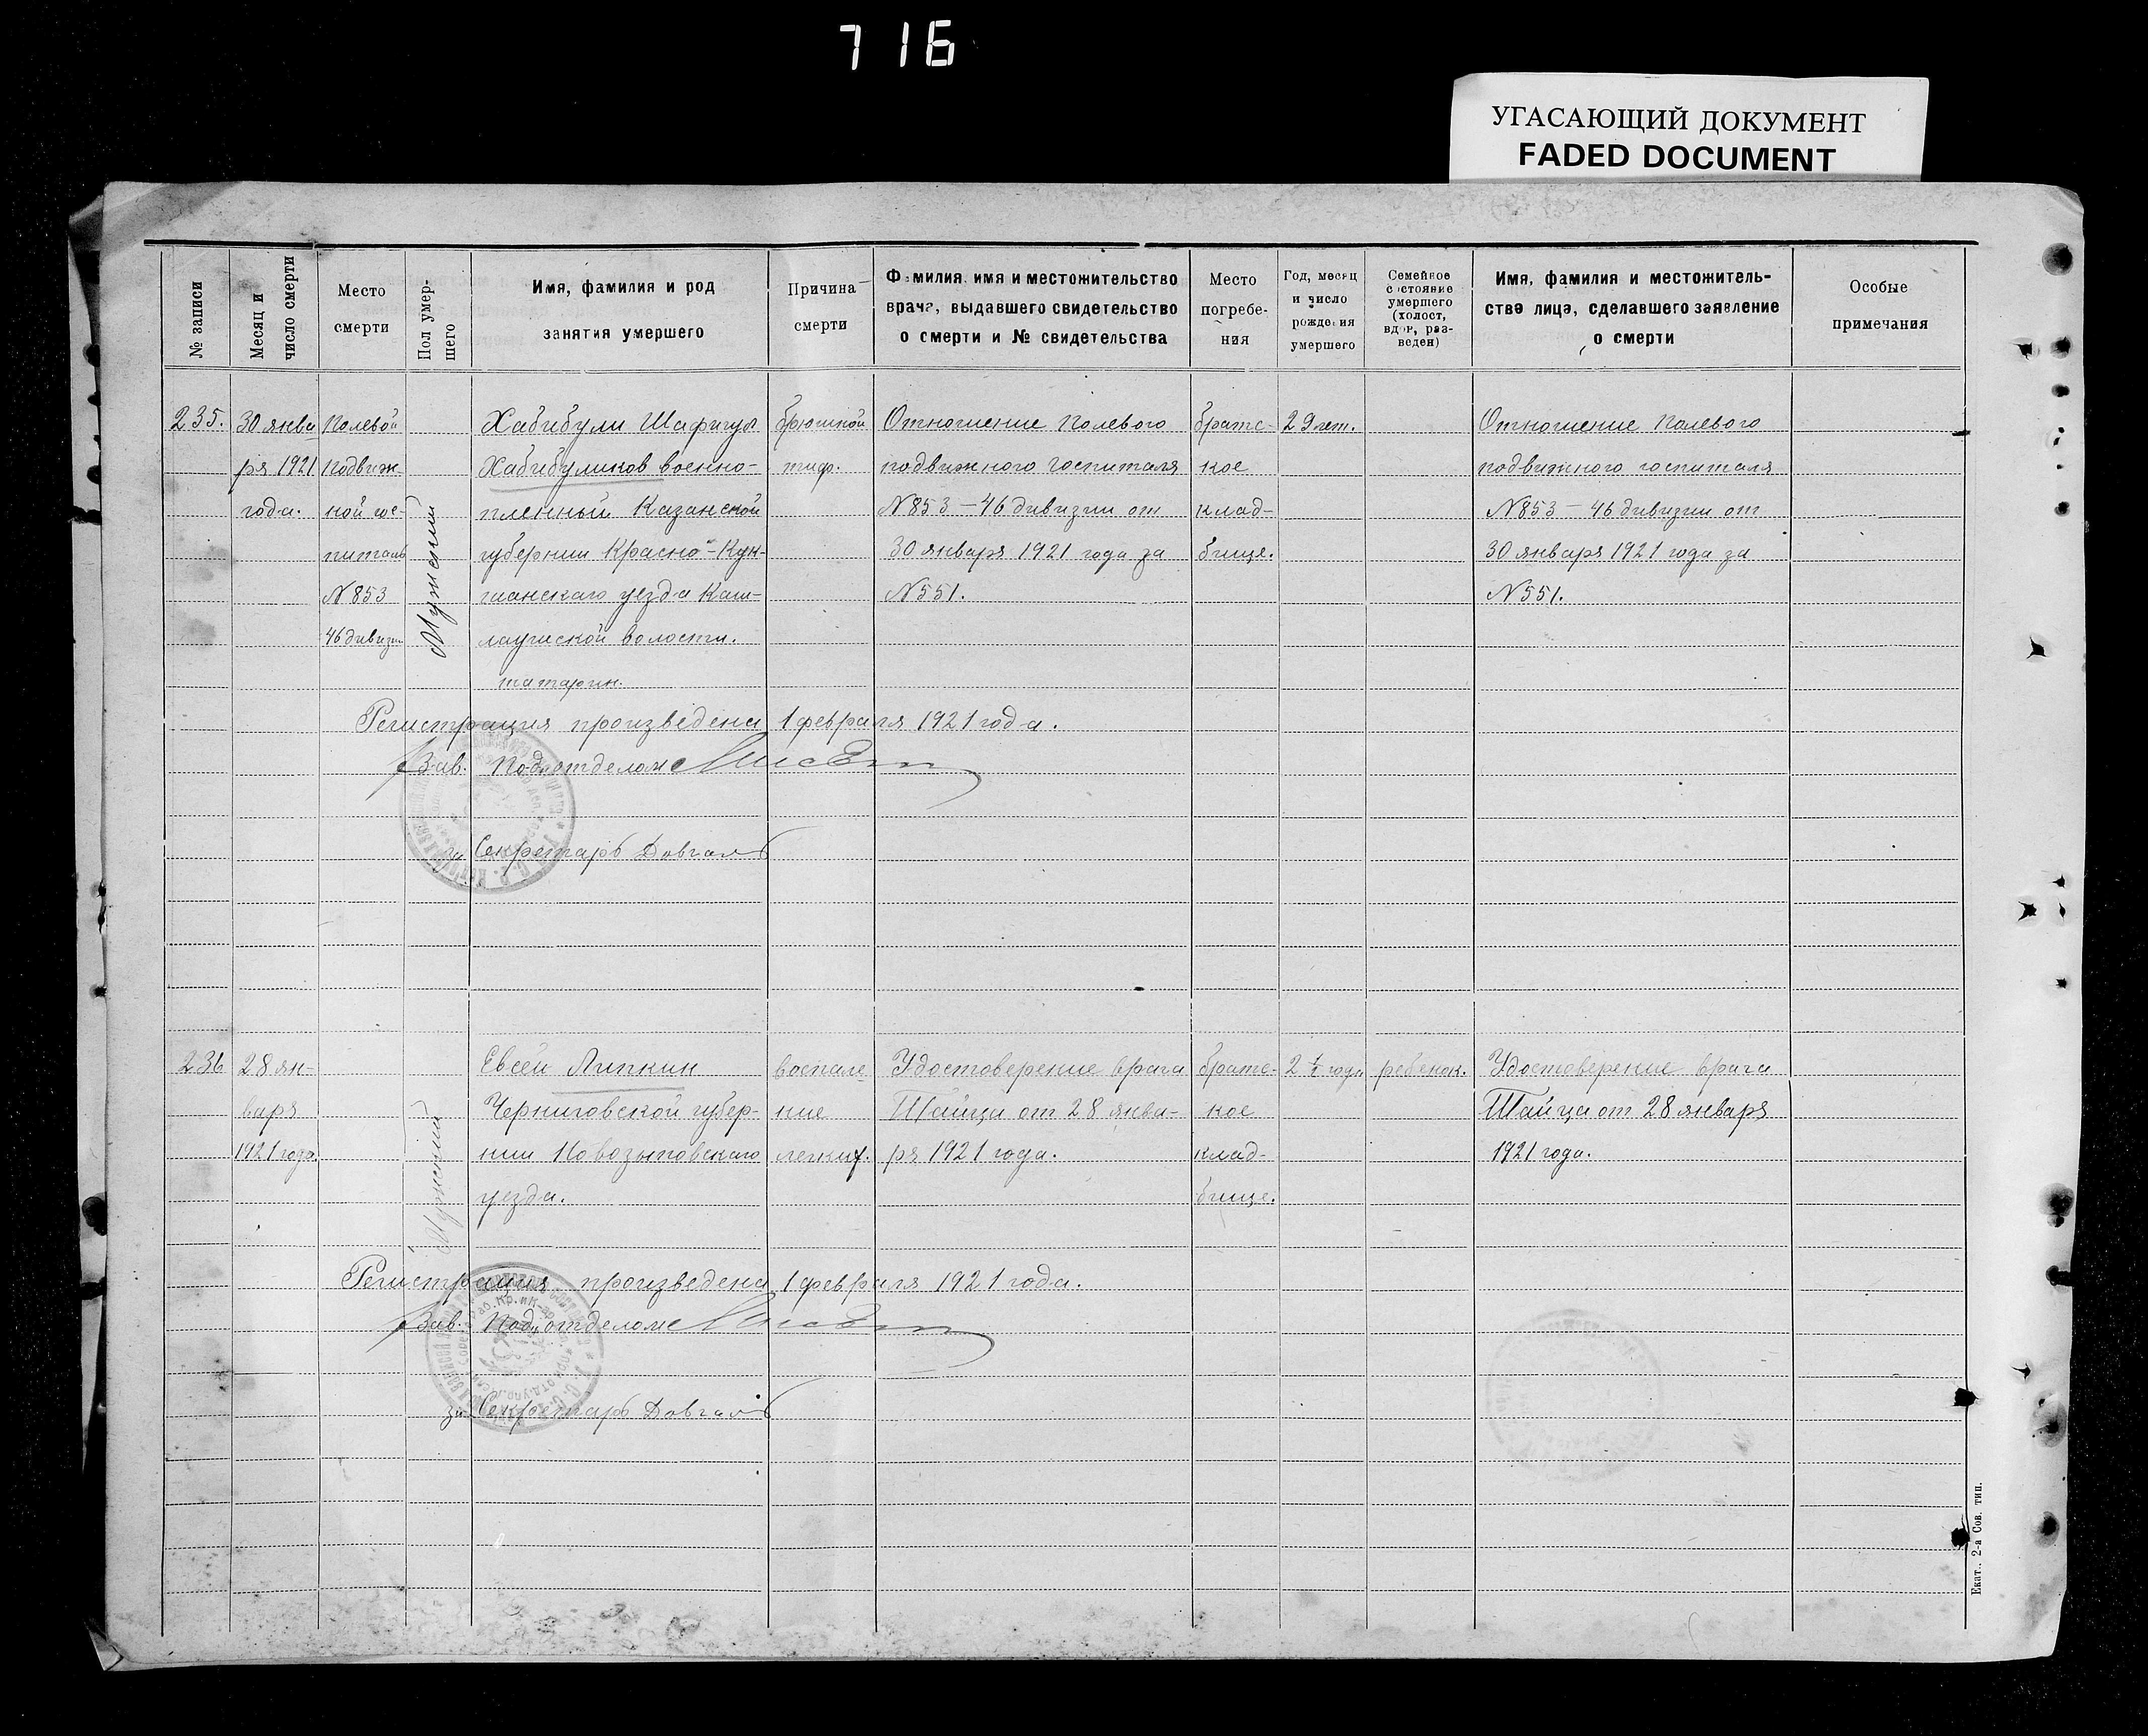 716
УГАСАЮЩИЙ ДОКУМЕНТ
FADED DOCUMENT
№ записи
Месяц и
число смерти
Место
смерти
Пол умер-
шего
Имя, фамилия и род
занятия умершего
Причина
смерти
Фамилия, имя и местожительство
врача, выдавшего свидетельство
о смерти и № свидетельства
Место
погребе-
ния
Год, месяц
и число
рождения
умершего
Семейное
состояние
умершего
(холост,
вдов, раз-
веден)
Имя, фамилия и местожитель-
ство лица, сделавшего заявление
о смерти
Особые
примечания
235.
30 янва
ря 1921
года.
Полевой
подвиж
ной гос-
питаль
№ 853
46 дивизии
Мужской
Хабибули Шафигул
Хабибуликов военно-
пленный Казанской
губернии Красно-Кук-
шанскаго уезда
волости.
татарин.
брюшной
тиф.
Отношение Полевого
подвижного госпиталя
№ 853 – 46 дивизии от
30 января 1921 года за
№ 551.
братс-
кое
клад-
бище.
29 лет.
Отношение Полевого
подвижного госпиталя
№ 853 – 46 дивизии от
30 января 1921 года за
№ 551.
Регистрация произведена 1 февраля 1921 года.
Зав. Под,отделом
Секретарь Довгаль
236
28 ян-
варя
1921 года.
Мужской
Евсей Липкин
Черниговской губер-
нии Новозыбковскаго
уезда.
воспале-
ние
легких.
Удостоверение врача
Шайца от 28 янва-
ря 1921 года.
братс-
кое
клад-
бище.
2 1/2 года
ребенок.
Удостоверение врача
Шайца от 28 января
1921 года.
Регистрация произведена 1 февраля 1921 года.
Зав. Под,отделом
за Секретарь Довгаль
Екат. 2-а Сов. тип.